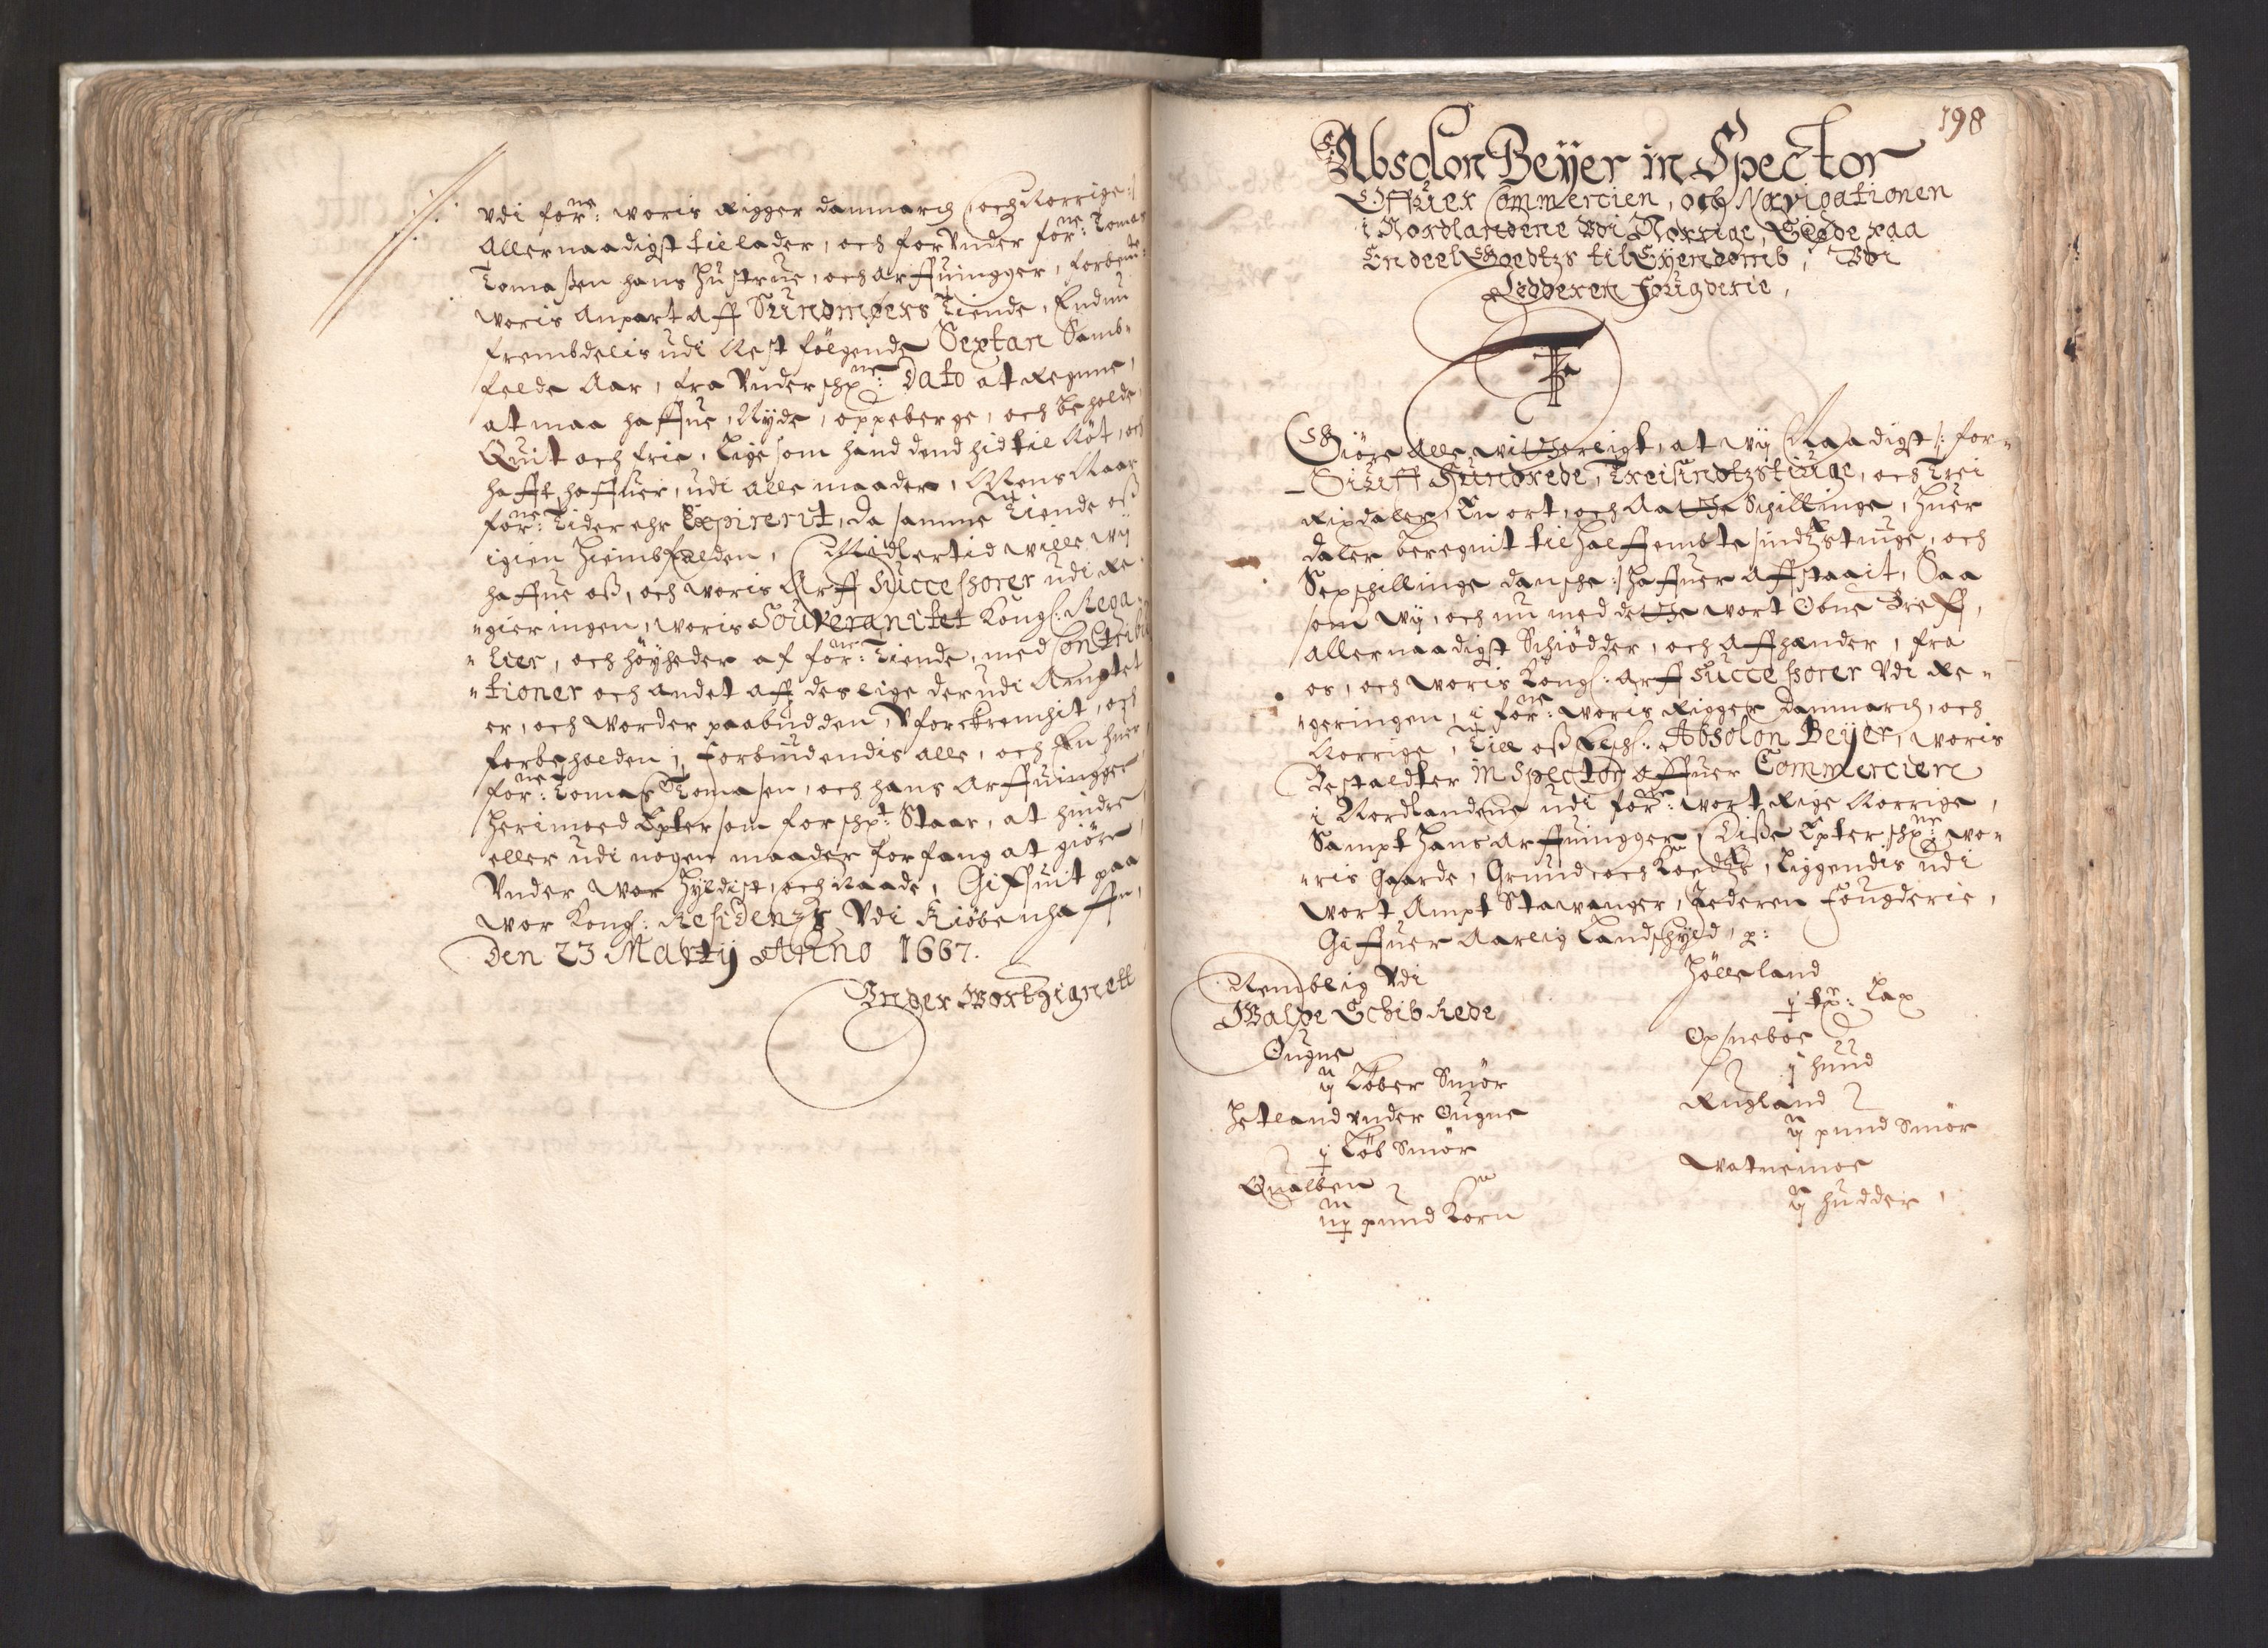 vdi forne: woris Rigger danmarch och Norrige:/
Allernaadigst tillader, och forVnder forne: Tomas
Tomaßen hans Hustrue, och Arffuingger, forbemte:
woris Anpart Aff Sundmøers Tiende, Endnu
frembdelis udi Nest følgende Sextan Samb-
felde Aar, fra Vnderschrne: Dato at Regnne,
at maa haffue, Nyde, oppeberge, och beholde
Quit och frie, Lige som hand dend hid til Nöt, och
hafft haffuer, udi Alle maader, Mens Naar
forne: Tider ehr Expirerit, da samme Tiende oß
igien Hiembfalden, Midlertid wille wij
haffue oß, och woris Arff Successorer udi Re-
-gieringen, woris Souveranitet Kongl: Rega-
-lier, och höyheder af forne: Tiende, med Contribu
-tioner och Andet Aff deslige der udi Aengtet
er, och worder paabudden, Vforckrenchit, och
forbeholden; Forbiudendis Alle, och En huer
forne: Tomas Tomasen, och hans Arffuingger
Herimoed Epter som forschrt: Staar, at hindre
eller udi nogen maader forfang at giöre,
Vnder Wor Hyldist, och Naade, Giffuit paa
wor Kongl: Residentz Vdi Kiöbenhaffn,
Den 23 Martij Anno 1667.
Vnder Wort Zignett
198
Absolon Beyer in Spector
Offuer Commercien, och Navigationen
i Nordlandene Vdi Norrige, Siøde paa
En deel Goedtzs til Eyendomb, Vdi
Jedderen Fougderie,
F
Giöre Alle witterligt, at wij Naadigst /: for-
-Siuff Hundrede, Treisindtzstiuge, och Trei
Rixdaler, En ort, och Aatte Schillinge, Huer
daler beregnit til Halffembtesindtzstiuge, och
Sex schillinge dansche:/ Haffuer Affstaait, Saa
som Wij, och nu med dette wort Obne Breff,
Allernaadigst Schiödder, och Affhænder, fra
os, och woris Kongl: Arff Successorer Vdi Re-
-geringen, i forne: woris Rigger Danmarch, och
Norrige, Till oß Elschl: Absolon Beyer, woris
Bestaldter in Spector offuer Commercien
i Nordlandene udi forne: wort Rige Norrige,
Sampt Hans Arffuingger Diße Epterschrne: wo-
-ris Gaarde, Grund och Goedtzs, Liggendis udi
wort Ampt Stawanger, Jederen Fougderie,
Giffuer Aarlig Landschyld, p:
Nemblig Vdi
Walde Schib Rede
Ougne
ij Löber Smör
Hetland vnder Ougne
j Löb Smör
Qualben
iij pund Korn
Hölleland
j tr: Lax
Opsneboe
j huud
Rugland
ij pund Smör
Watnemoe
ij hudder,